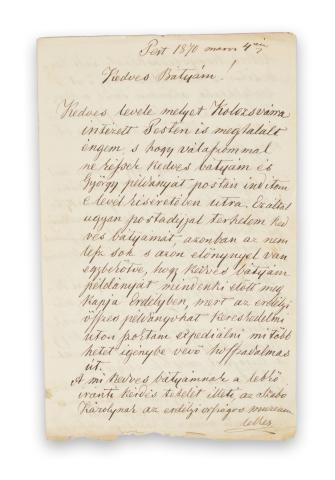 Pest 1870 mars 4én
Kedves Bátyám!
Kedves levele melyet Kolozsvárra
intézett Pesten is megtalált
engem s hogy válaszommal
ne késsek kedves bátyám és
György példányát postán indítom
e levél kíséretében útra. Ezáltal
ugyan postadíjjal terhelem ked
ves bátyámat, azonban az nem
lesz sok s azon előnynyel van
egybekötve, hogy kedves bátyám
példányát mindenki előtt meg
kapja Erdélyben, mert az erdélyi
összes példányokat kereskedelmi
úton hozatom expediálni mi több
hetet igénybe vevő hosszadalmas
út.
A mi kedves bátyámnak a
kérdés tételét illeti, az Szabó
Károlynak az erdélyi országos muzeum